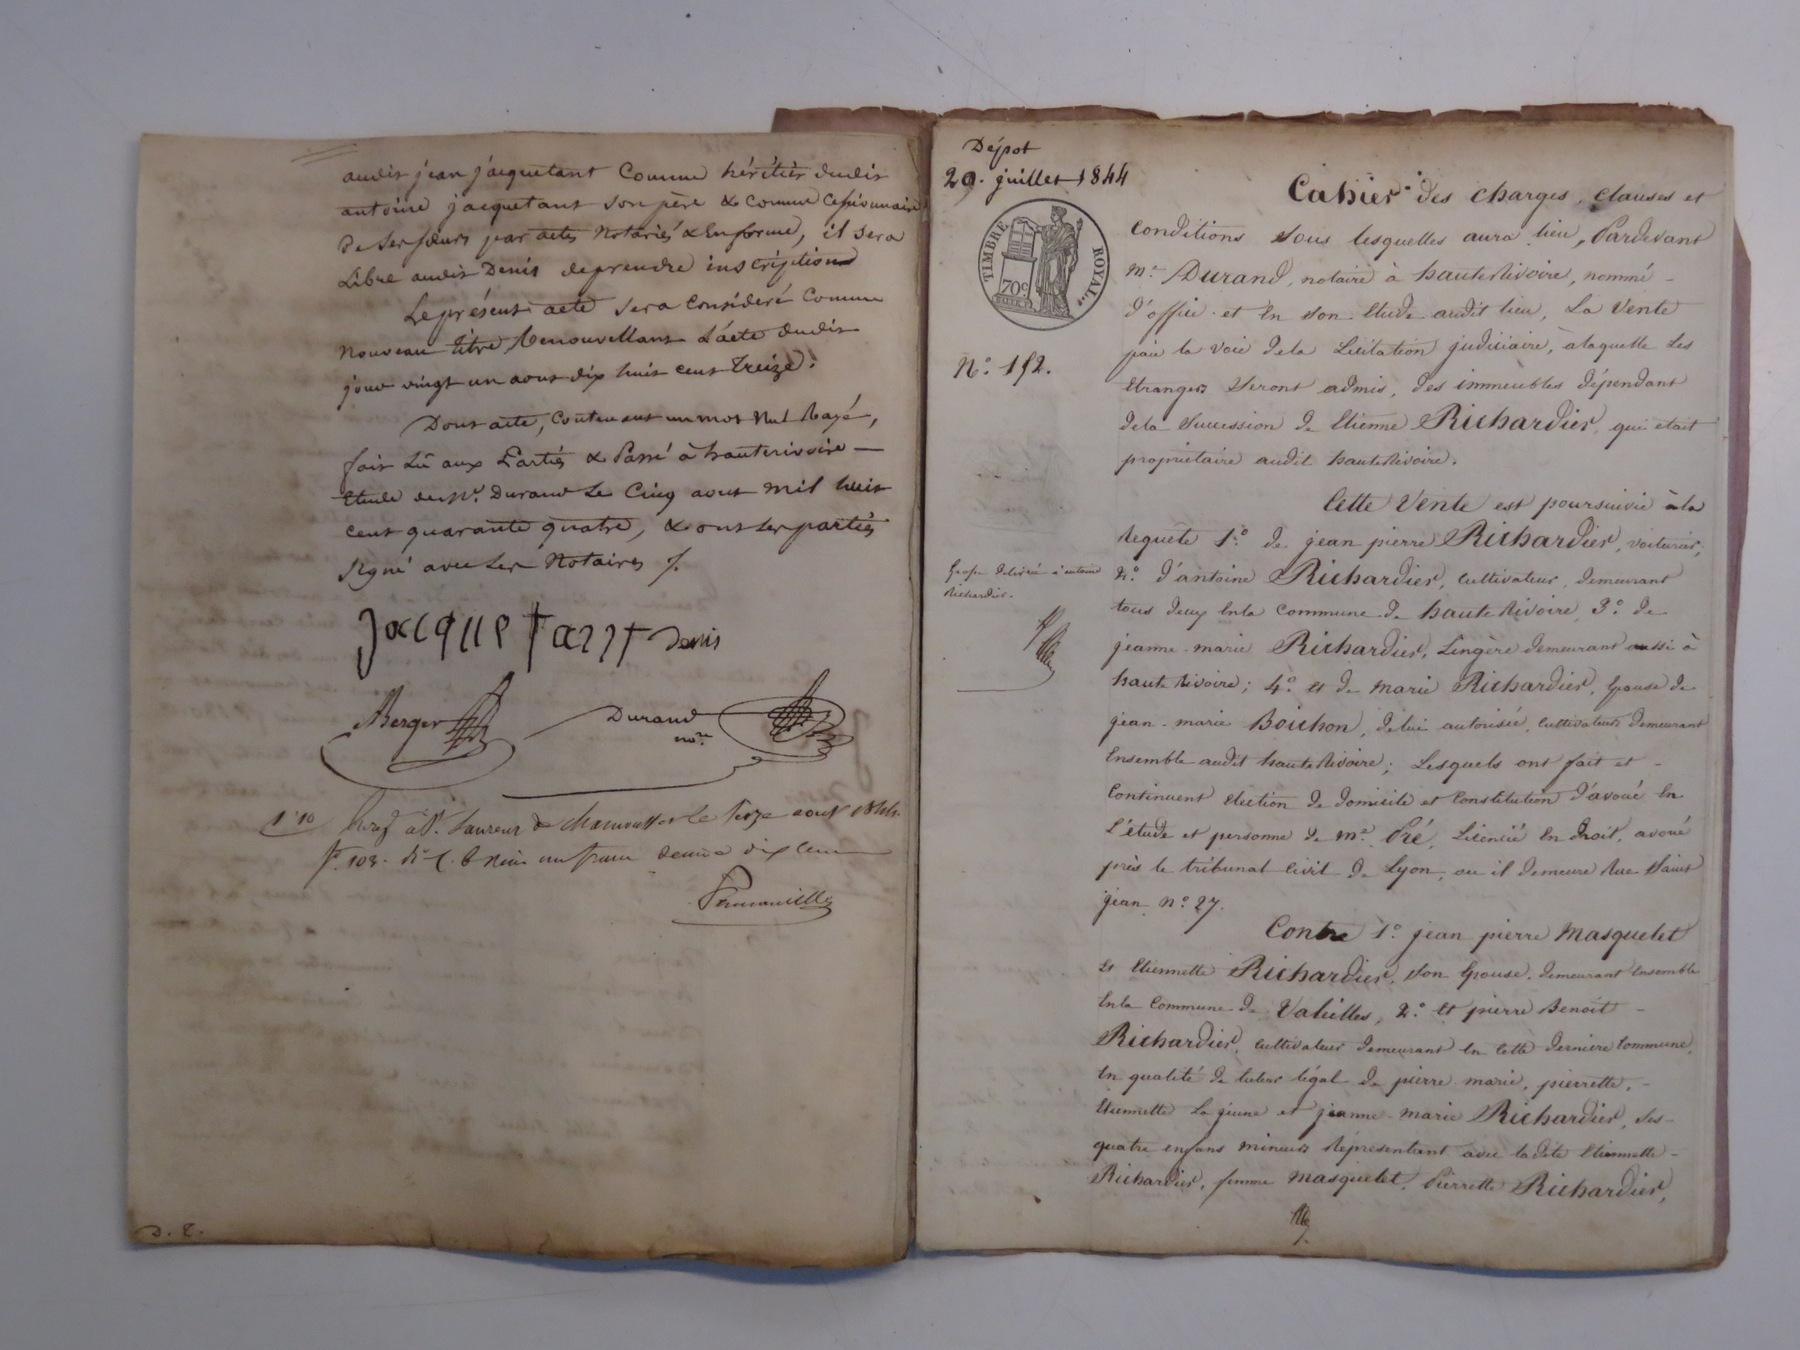 audit jean jacquetant comme héritier dudit
antoine jacquetant son père & comme cessionnaire
de ses sœurs par actes notariés & en forme, il sera
Libre audit Denis de prendre inscription
Le présent acte sera considéré comme
nouveau titre renouvellant L'acte dudit
jour vingt un aout dix huit cent treize.
Dont acte, contenant un mot nul Rayé,
fait Lû aux Parties & Passé à hauterivoire —
Etude de Mr. Durand Le cinq aout mil huit
cent quarante quatre, & ont Les parties
signé avec Les Notaires /.
jacquetant Denis
Berger Durand
nore.
1'10 Enregé à St. Laurent de Chamousset le treize aout 1844.
fo. 108. Ro C. 6 Reçu un franc decime dix cent
D. 2.
Dépot
29. juillet 1844
TIMBRE ROYAL
70c
No. 152.
Cahier des charges, clauses et
conditions sous lesquelles aura lieu, Pardevant
Me. Durand, notaire à hauteRivoire, nommé -
d'office et en son Etude audit lieu, La Vente
par la voie de la Licitation judiciaire, à laquelle Les
Etrangers seront admis, des immeubles dépendant
de la Succession de Etienne Richardier, qui était
propriétaire audit hauteRivoire.
Cette Vente est poursuivie à la
Requête 1.o de jean pierre Richardier, voiturier;
Grosse delivrée à antoine
Richardier.
2.o d'antoine Richardier, cultivateur, demeurant
tous deux en la commune de hauteRivoire, 3.o de
jeanne-marie Richardier, Lingère demeurant aussi à
haute Rivoire; 4.o et de marie Richardier, Epouse de
jean-marie Bouchon, de lui autorisée, cultivateurs demeurant
Ensemble audit hauteRivoire; Lesquels ont fait et -
continuent élection de domicile et constitution d'avoué en
L'étude et personne de me. Pré, Licencié en droit, avoué
près le tribunal civil de Lyon, ou il demeure Rue Saint
jean no. 27.
Contre 1.o jean pierre Masquelet
et Etiennette Richardier, son Epouse, demeurant Ensemble
En la commune de Valeilles, 2.o Et pierre Benoît -
Richardier, cultivateur demeurant en cette dernière commune,
En qualité de tuteur légal de pierre marie, pierrette, -
Etiennette La jeune et jeanne-marie Richardier, ses -
quatre enfans mineurs Représentant avec ladite Etiennette -
Richardier, femme Masquelet, Pierrette Richardier,